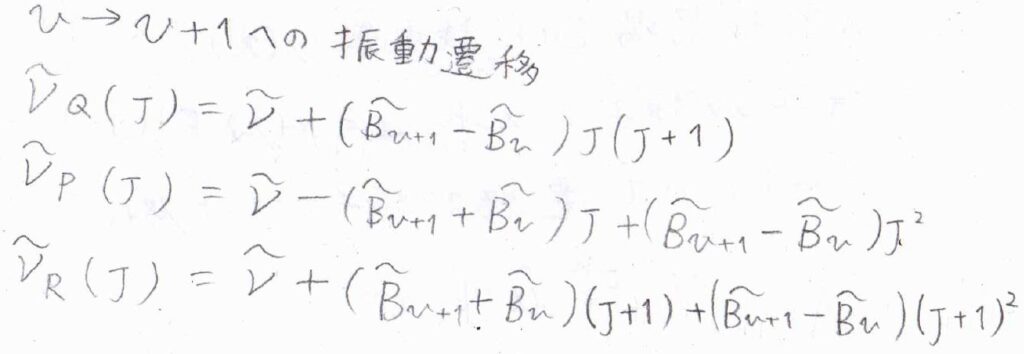 v→v+1への振動遷移
ν̃_Q(J) = ν̃ + (B̃_{v+1} − B̃_v)J(J+1)
ν̃_P(J) = ν̃ − (B̃_{v+1} + B̃_v)J + (B̃_{v+1} − B̃_v)J²
ν̃_R(J) = ν̃ + (B̃_{v+1} + B̃_v)(J+1) + (B̃_{v+1} − B̃_v)(J+1)²